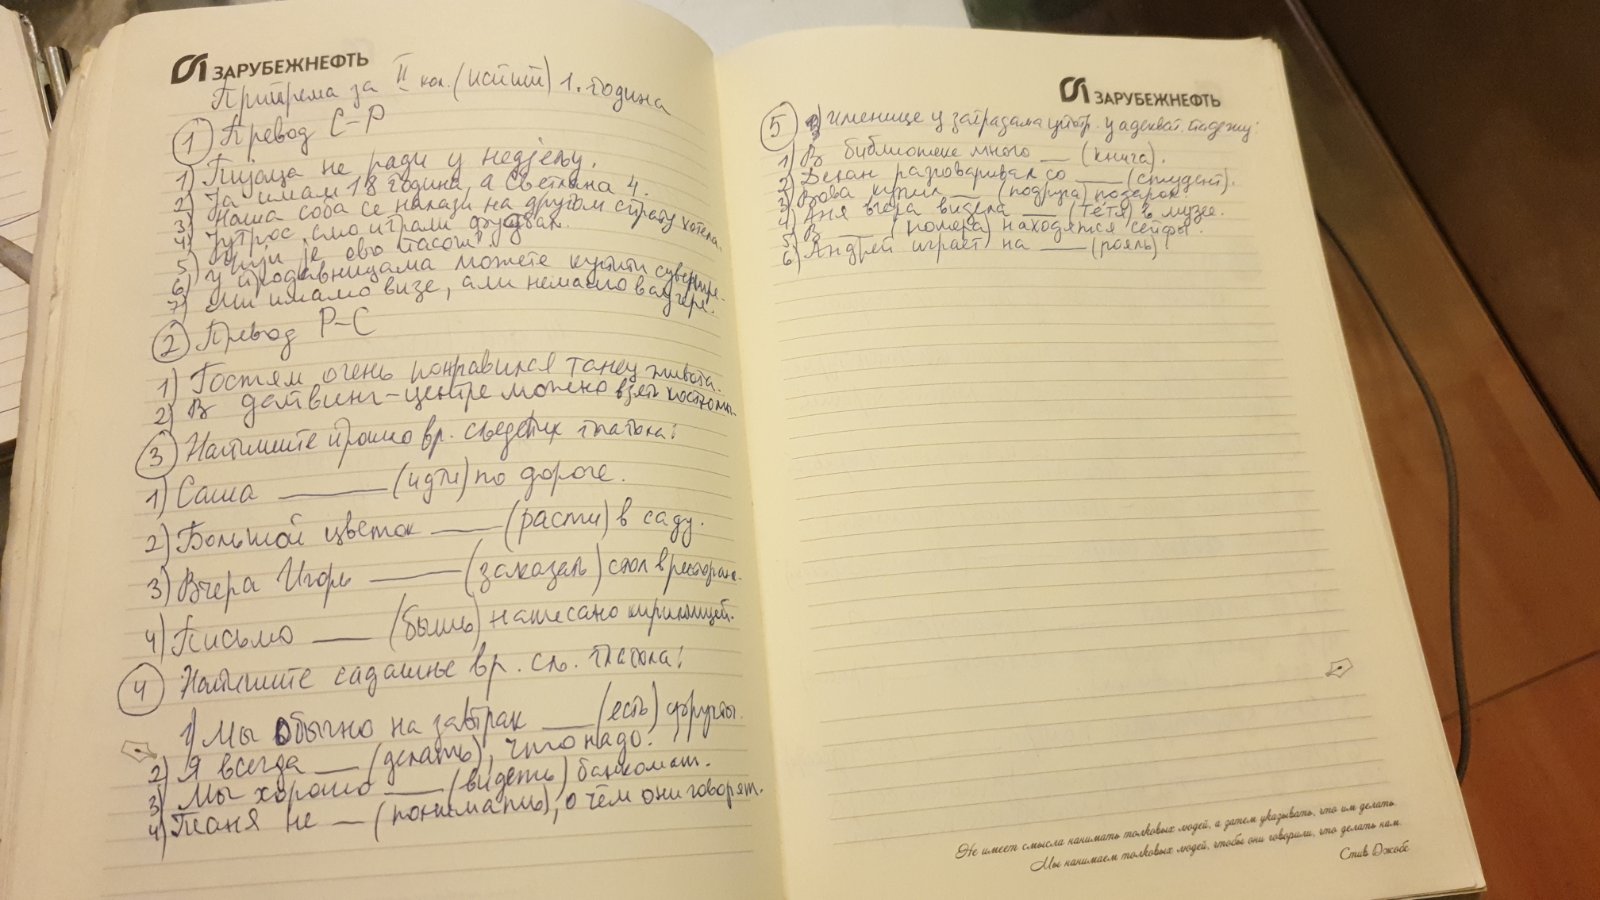 ЗАРУБЕЖНЕФТЬ
Припрема за II кол. (испит) 1. година
1 Превод С-Р
1) Пијаца не ради у недјељу.
2) Ја имам 18 година, а Светлана 4.
3) Наша соба се налази на другом спрату хотела.
4) Јутрос смо играли фудбал.
5) Чији је ово пасош?
6) У продавницама можете купити сувенире.
7) Ми имамо визе, али немамо ваучере.
2 Превод Р-С
1) Гостям очень понравился танец живота.
2) В дайвинг-центре можно взять костюмы.
3 Напишите прошло вр. сљедећих глагола:
1) Саша ___ (идти) по дороге.
2) Большой цветок ___ (расти) в саду.
3) Вчера Игорь ___ (заказать) стол в ресторане.
4) Письмо ___ (быть) написано кириллицей.
4 Напишите садашње вр. сљ. глагола:
1) Мы обычно на завтрак ___ (есть) фрукты.
2) Я всегда ___ (делать), что надо.
3) Мы хорошо ___ (видеть) банкомат.
4) Таня не ___ (понимать), о чём они говорят.
ЗАРУБЕЖНЕФТЬ
5 Именице у заградама употр. у адекват. падежу:
1) В библиотеке много ___ (книга).
2) Декан разговаривал со ___ (студент).
3) Вова купил ___ (подруга) подарок.
4) Аня вчера видела ___ (тётя) в музее.
5) В ___ (номера) находятся сейфы.
6) Андрей играет на ___ (рояль).
Не имеет смысла нанимать толковых людей, а затем указывать, что им делать.
Мы нанимаем толковых людей, чтобы они говорили, что делать нам.
Стив Джобс